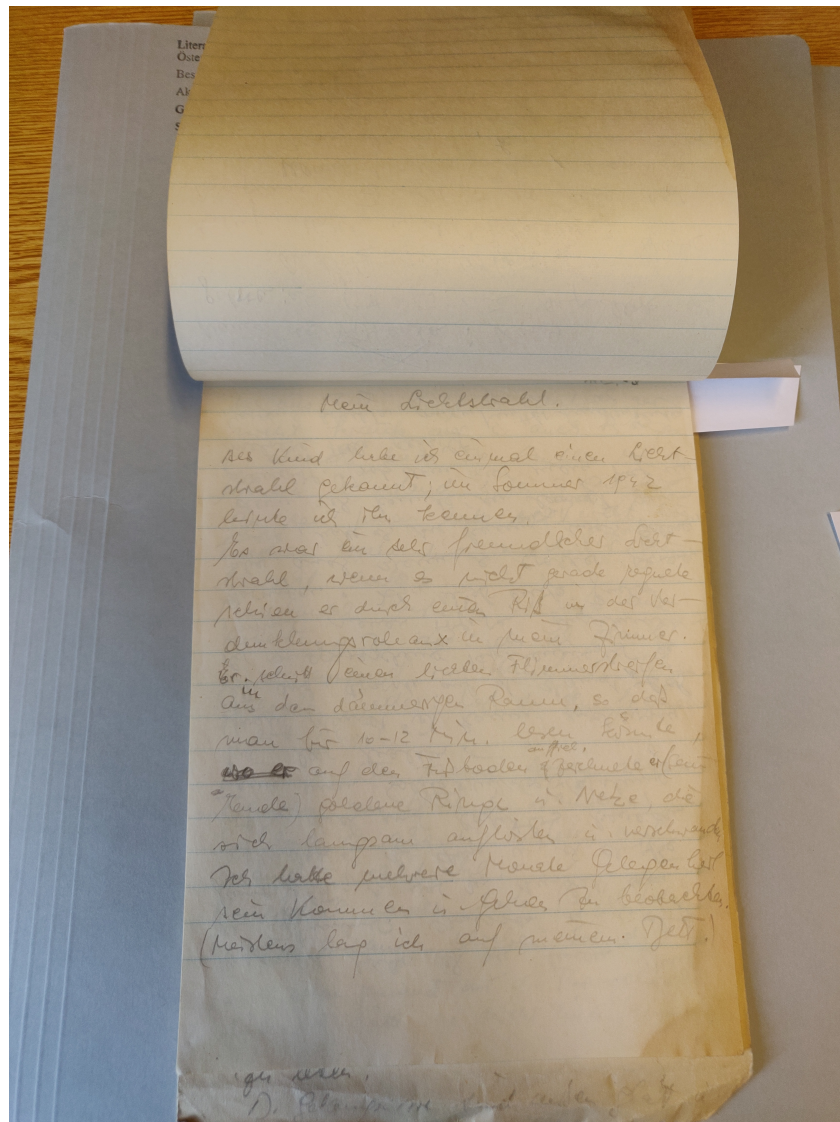 Liter
Öste
Bes
Ak
G
S
Mein Lichtstrahl.
Als Kind habe ich einmal einen Licht-
strahl gekannt; im Sommer 1942
lernte ich ihn kennen.
Es war ein sehr freundlicher Licht-
strahl, wenn es nicht gerade regnete
schien er durch einen Riß in der Ver-
dunklungsroleaux in mein Zimmer.
Er schnitt einen lichten Flimmerstreifen
in den dämmerigen Raum, so daß
man für 10-12 Min. lesen könnte,
auftraf,
wo er auf den Fußboden zeichnete er
goldene Ringe u. Netze, die
sich langsam auflösten u. verschwanden
Ich hatte mehrere Monate Gelegenheit
sein Kommen u. Gehen zu beobachten.
(Meistens lag ich auf meinem Bett!